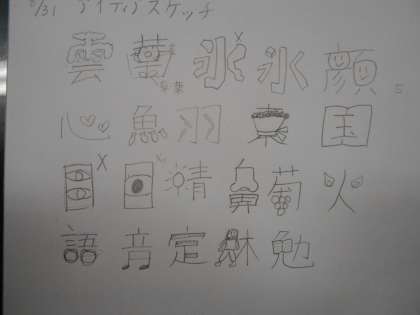 8/31 アイディアスケッチ
雲 葉 氷 氷 顔
心 魚 羽 東 国
目 X 目 X 晴 鼻 萄 火
語 音 定 休 勉